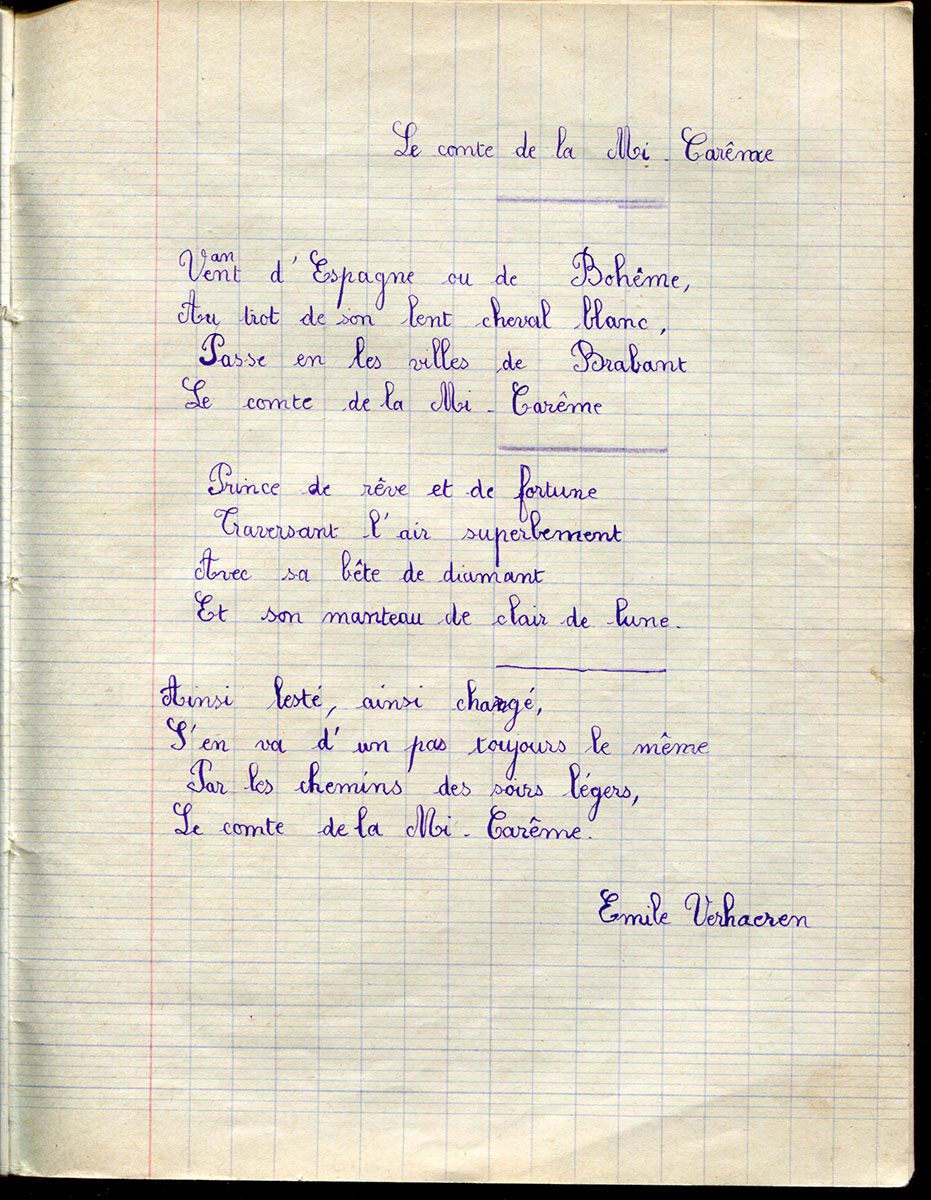 Le comte de la Mi-Carême
Vent d'Espagne ou de Bohême,
an
Au trot de son lent cheval blanc,
Passe en les villes de Brabant
Le comte de la Mi-Carême
Prince de rêve et de fortune
Traversant l'air superbement
Avec sa bête de diamant
Et son manteau de clair de lune.
Ainsi lesté, ainsi changé,
S'en va d'un pas toujours le même
Par les chemins des soirs légers,
Le comte de la Mi-Carême.
Emile Verhaeren